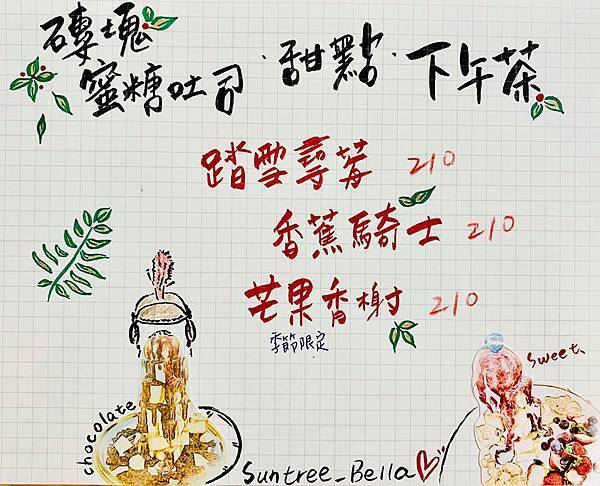 磚塊
蜜糖吐司·甜點·下午茶
踏雪尋莓 210
香蕉騎士 210
芒果香榭 210
季節限定
sweet
chocolate
Suntree_Bella